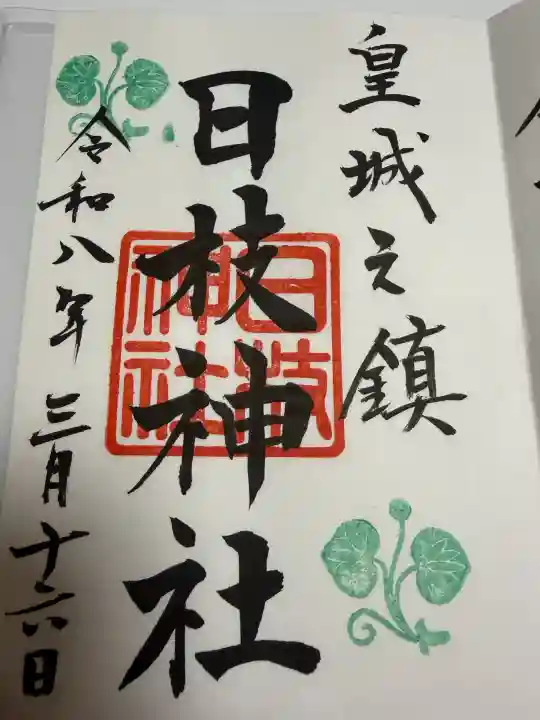 皇城之鎮
日枝神社
日枝神社
令和八年三月十六日